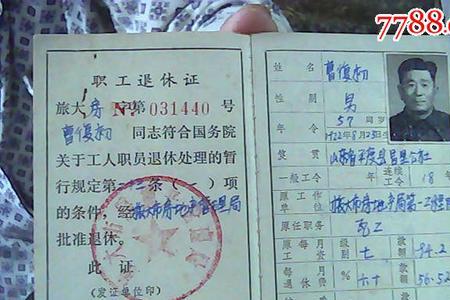 7788.c
职工退休证
旅大房字第 №031440 号
曹俊初 同志符合国务院
关于工人职员退休处理的暂
行规定第二条（ ）项
的条件，经旅大市房地产管理局
批准退休。
此证
（发证单位印）
姓名 曹俊初
性别 男
年令 57 周岁
1922年8月23日生
籍贯 山东省平度县
一级工令 年 连续工令 18年
原工作单位 旅大市房地产局第一工程
原任职务 瓦工
原每月工资 级别 七 款额 94.2
每月退休费 ％ 六十 款额 56.52